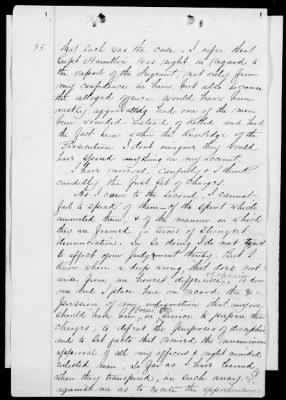 33
that such was the case. I infer that
Capt Hamilton was right in regard to
the report of the Sergeant, not only from
my confidence in him, but also because
the alleged offence would have been
vastly aggravated had one of the men
been wounded instead of killed and had
the fact been within the knowledge of the
Prosecution I dont imagine they would
have spared anything in my account.
I have reviewed, carefully & I think
candidly the first set of charges.
As I come to the second, I cannot
fail to speak of them, of the spirit which
animated them, & of the manner in which
they are framed in terms of strongest
denunciation. In so doing I do not
to affect your Judgement thereby. But I
know when a deep wrong, that does not
arise from an honest difference, of opinion is to
me done, I place here on record the
of my indignation that anyone
should have been in service to prepare these
charges, to defeat the purposes of discipline
and to set facts that received the unanimous
approval of all my officers & right minded
enlisted men, so far as I have learned
when they transpired, in such array
against me as to excite the apprehension